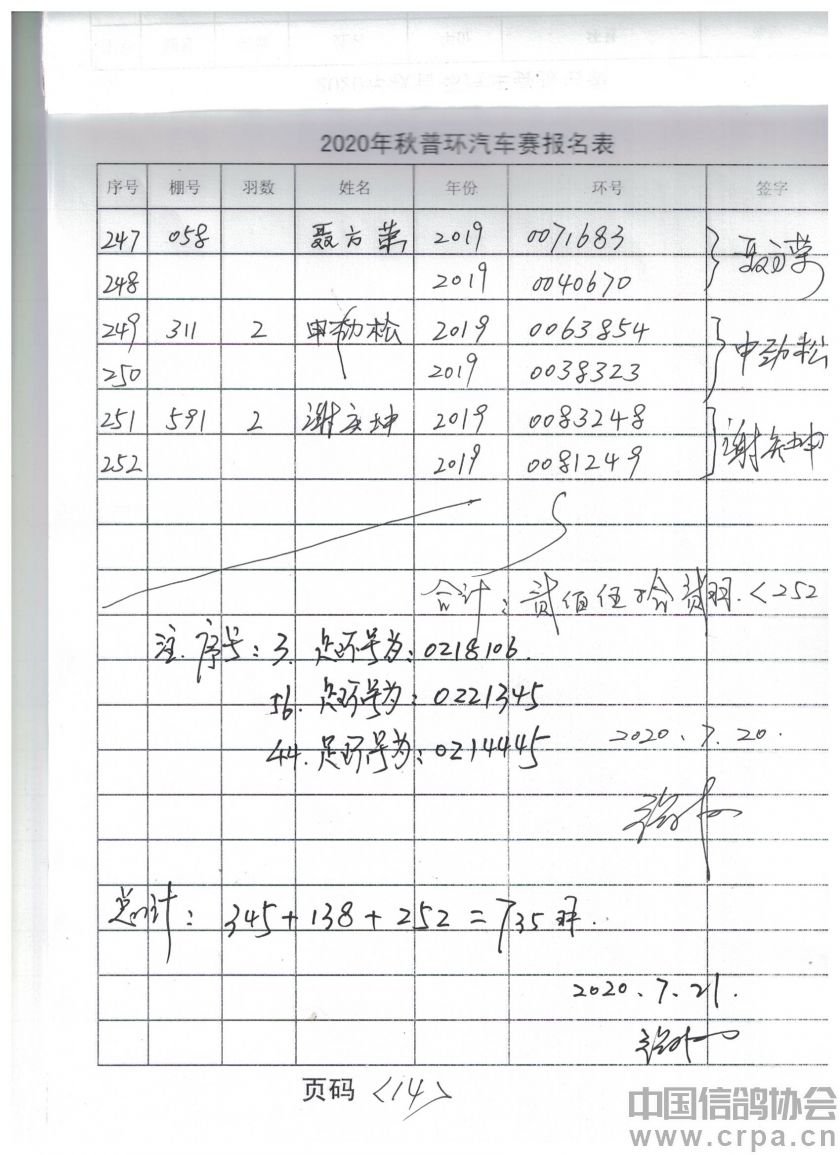 2020年秋普环汽车赛报名表
序号 棚号 羽数 姓名 年份 环号 签字
247 058 聂方荣 2019 0071683 聂方荣
248 2019 0040670
249 311 2 申劲松 2019 0063854 申劲松
250 2019 0038323
251 591 2 谢庆坤 2019 0083248 谢庆坤
252 2019 0081249
合计：贰佰伍拾贰羽.<252
注.序号：3. 足环号为：0218106.
56. 足环号为：0221345
44. 足环号为：0214445
2020.7.20.
总计：345+138+252=735羽..
2020.7.21.
页码<14>
中国信鸽协会
www.crpa.cn